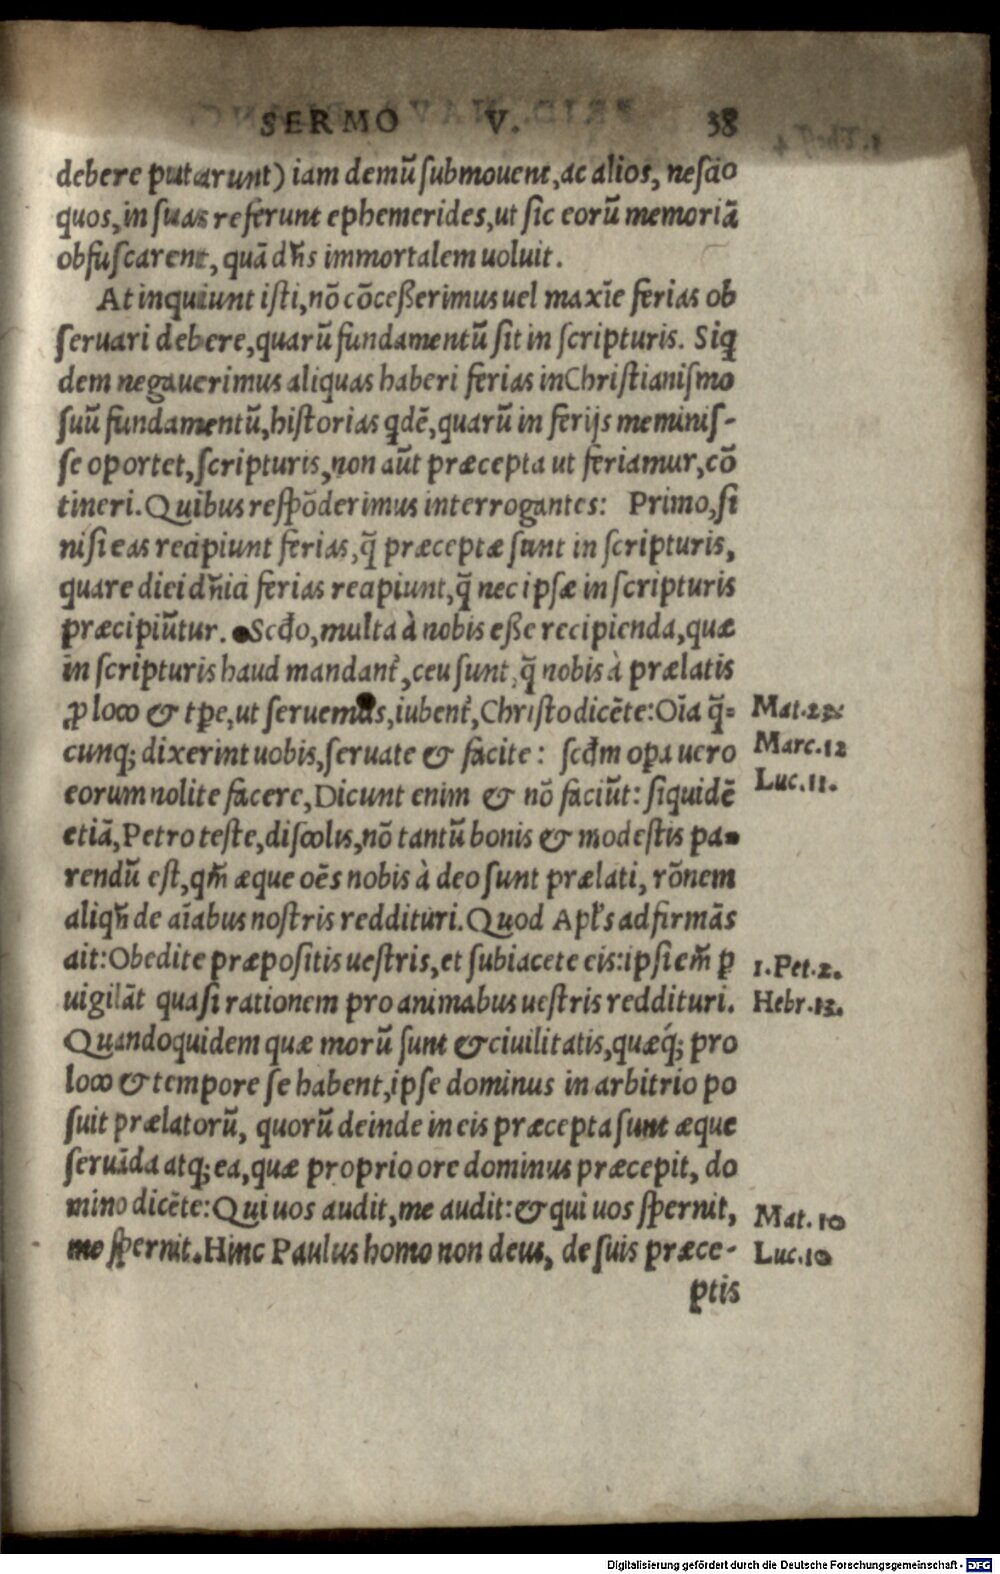 SERMO V. 38
debere putarunt) iam demũ ſubmouent, ac alios, neſcio
quos, in ſuas referunt ephemerides, ut ſic eorũ memoriã
obfuſcarent, quã dñs immortalem uoluit.
At inquiunt iſti, nõ cõceßerimus uel maxĩe ferias ob
ſeruari debere, quarũ fundamentũ ſit in ſcripturis. Siq̃
dem negauerimus aliquas haberi ferias in Chriſtianiſmo
ſuũ fundamentũ, hiſtorias qdẽ, quarũ in ferijs meminiſ-
ſe oportet, ſcripturis, non aũt præcepta ut feriamur, cõ
tineri. Quibus reſpõderimus interrogantes: Primo, ſi
niſi eas recipiunt ferias, q̃ præceptæ ſunt in ſcripturis,
quare diei dñici ferias recipiunt, q̃ nec ipſæ in ſcripturis
præcipiũtur. Scđo, multa à nobis eße recipienda, quæ
in ſcripturis haud mandant̃, ceu ſunt, q̃ nobis à prælatis
ꝓ loco & tꝑe, ut ſeruemus, iubent̃, Chriſto dicẽte: Oĩa q̃-
cunq; dixerint uobis, ſeruate & facite: ſcđm opa uero
eorum nolite facere, Dicunt enim & nõ faciũt: ſiquidẽ
etiã, Petro teſte, diſcolis, nõ tantũ bonis & modeſtis pa-
rendũ eſt, qm̃ æque oẽs nobis à deo ſunt prælati, rõnem
aliqñ de aĩabus noſtris reddituri. Quod Apl̃s adfirmãs
ait: Obedite præpoſitis ueſtris, et ſubiacete eis: ipſi em̃ ꝑ
uigilãt quaſi rationem pro animabus ueſtris reddituri.
Quandoquidem quæ morũ ſunt & ciuilitatis, quæq́; pro
loco & tempore ſe habent, ipſe dominus in arbitrio po
ſuit prælatorũ, quorũ deinde in eis præcepta ſunt æque
ſeruãda atq; ea, quæ proprio ore dominus præcepit, do
mino dicẽte: Qui uos audit, me audit: & qui uos ſpernit,
me ſpernit. Hinc Paulus homo non deus, de ſuis præce-
ptis
Mat.23.
Marc.12
Luc.11.
1.Pet.2.
Hebr.13.
Mat.10
Luc.10
Digitalisierung gefördert durch die Deutsche Forschungsgemeinschaft - DFG